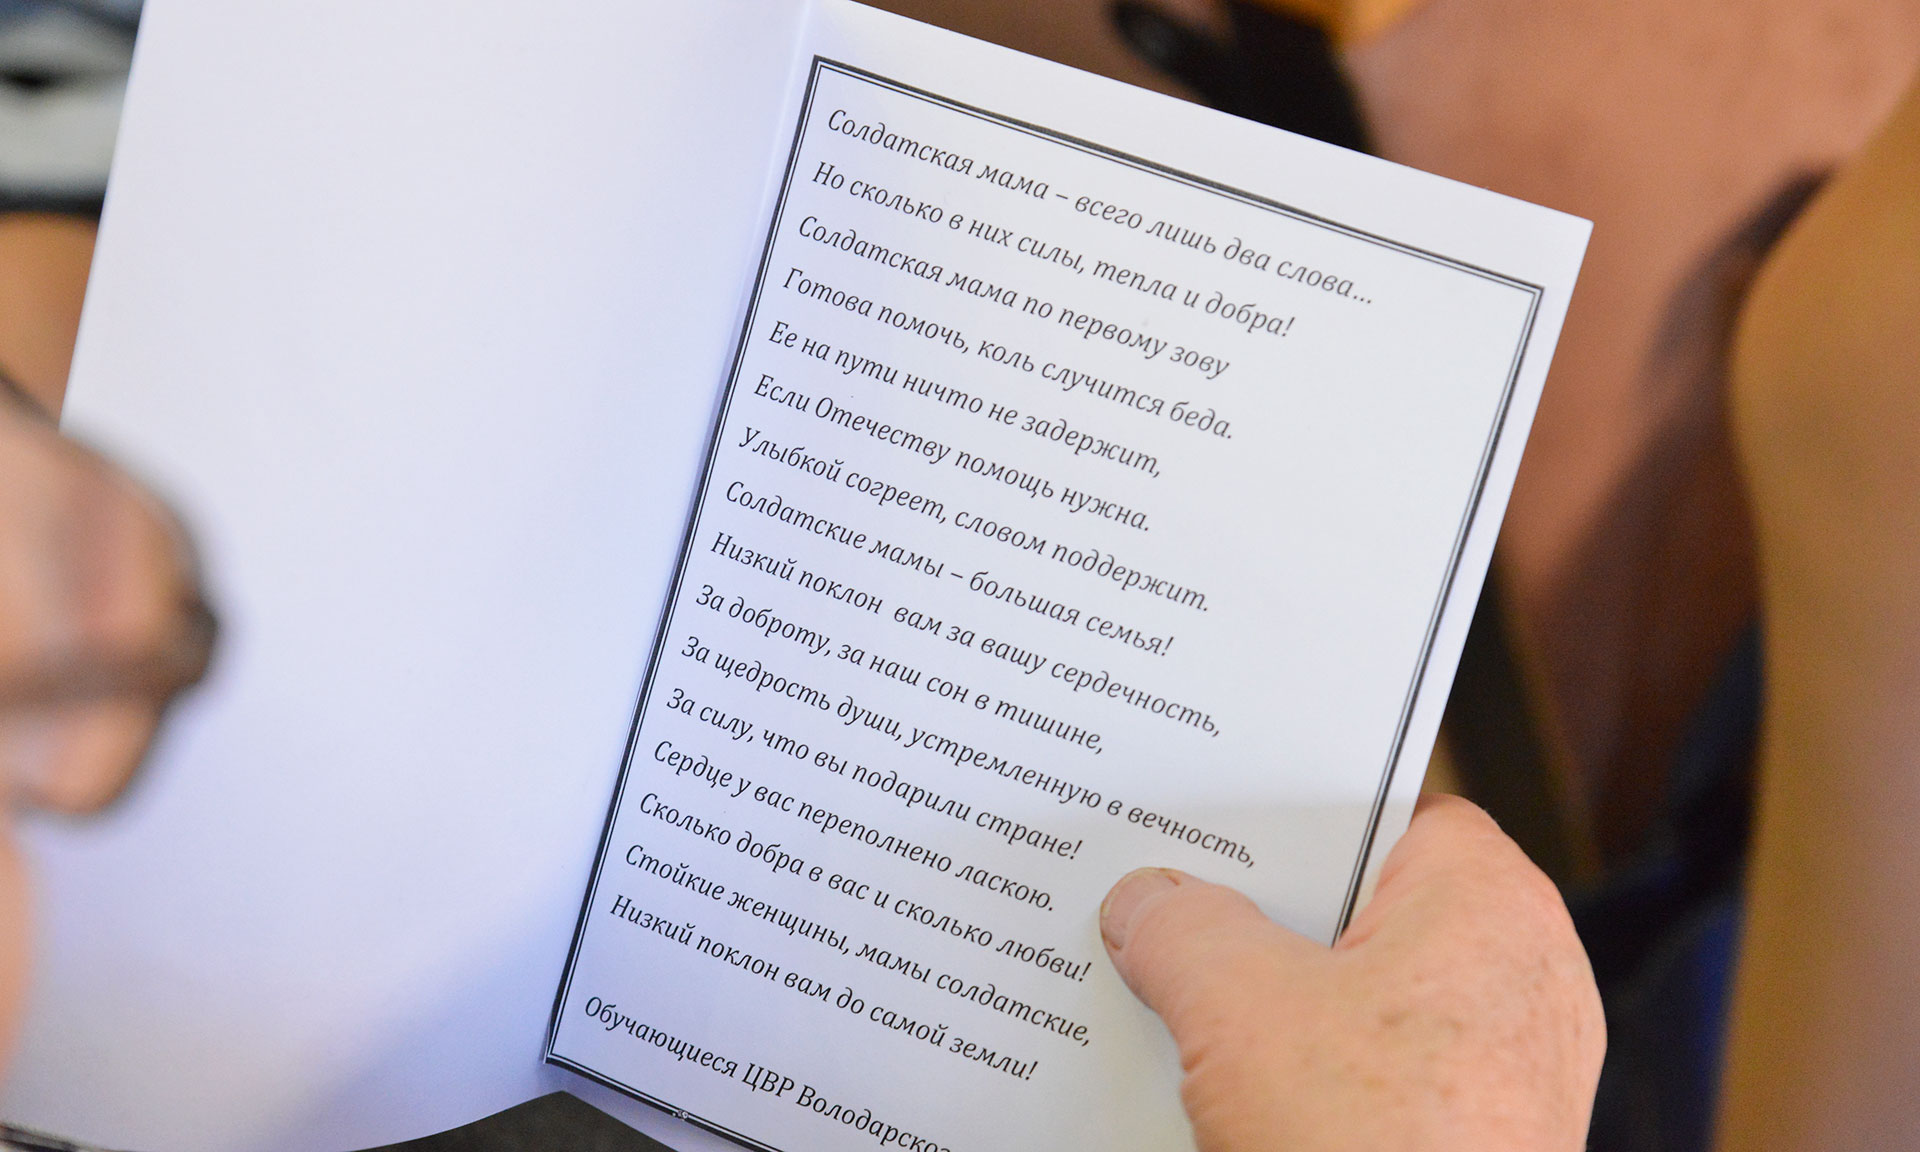 Солдатская мама – всего лишь два слова...
Но сколько в них силы, тепла и добра!
Солдатская мама по первому зову
Готова помочь, коль случится беда.
Ее на пути ничто не задержит,
Если Отечеству помощь нужна.
Улыбкой согреет, словом поддержит.
Солдатские мамы – большая семья!
Низкий поклон вам за вашу сердечность,
За доброту, за наш сон в тишине,
За щедрость души, устремленную в вечность,
За силу, что вы подарили стране!
Сердце у вас переполнено ласкою.
Сколько добра в вас и сколько любви!
Стойкие женщины, мамы солдатские,
Низкий поклон вам до самой земли!
Обучающиеся ЦВР